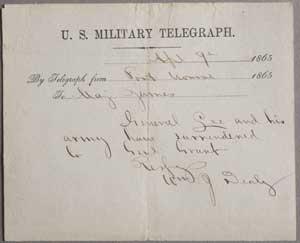 U. S. MILITARY TELEGRAPH.
Apl 9th 1865
By Telegraph from Fort Monroe 1865
To Maj James
General Lee and his
army have surrendered
to Genl Grant
Wm J Dealy